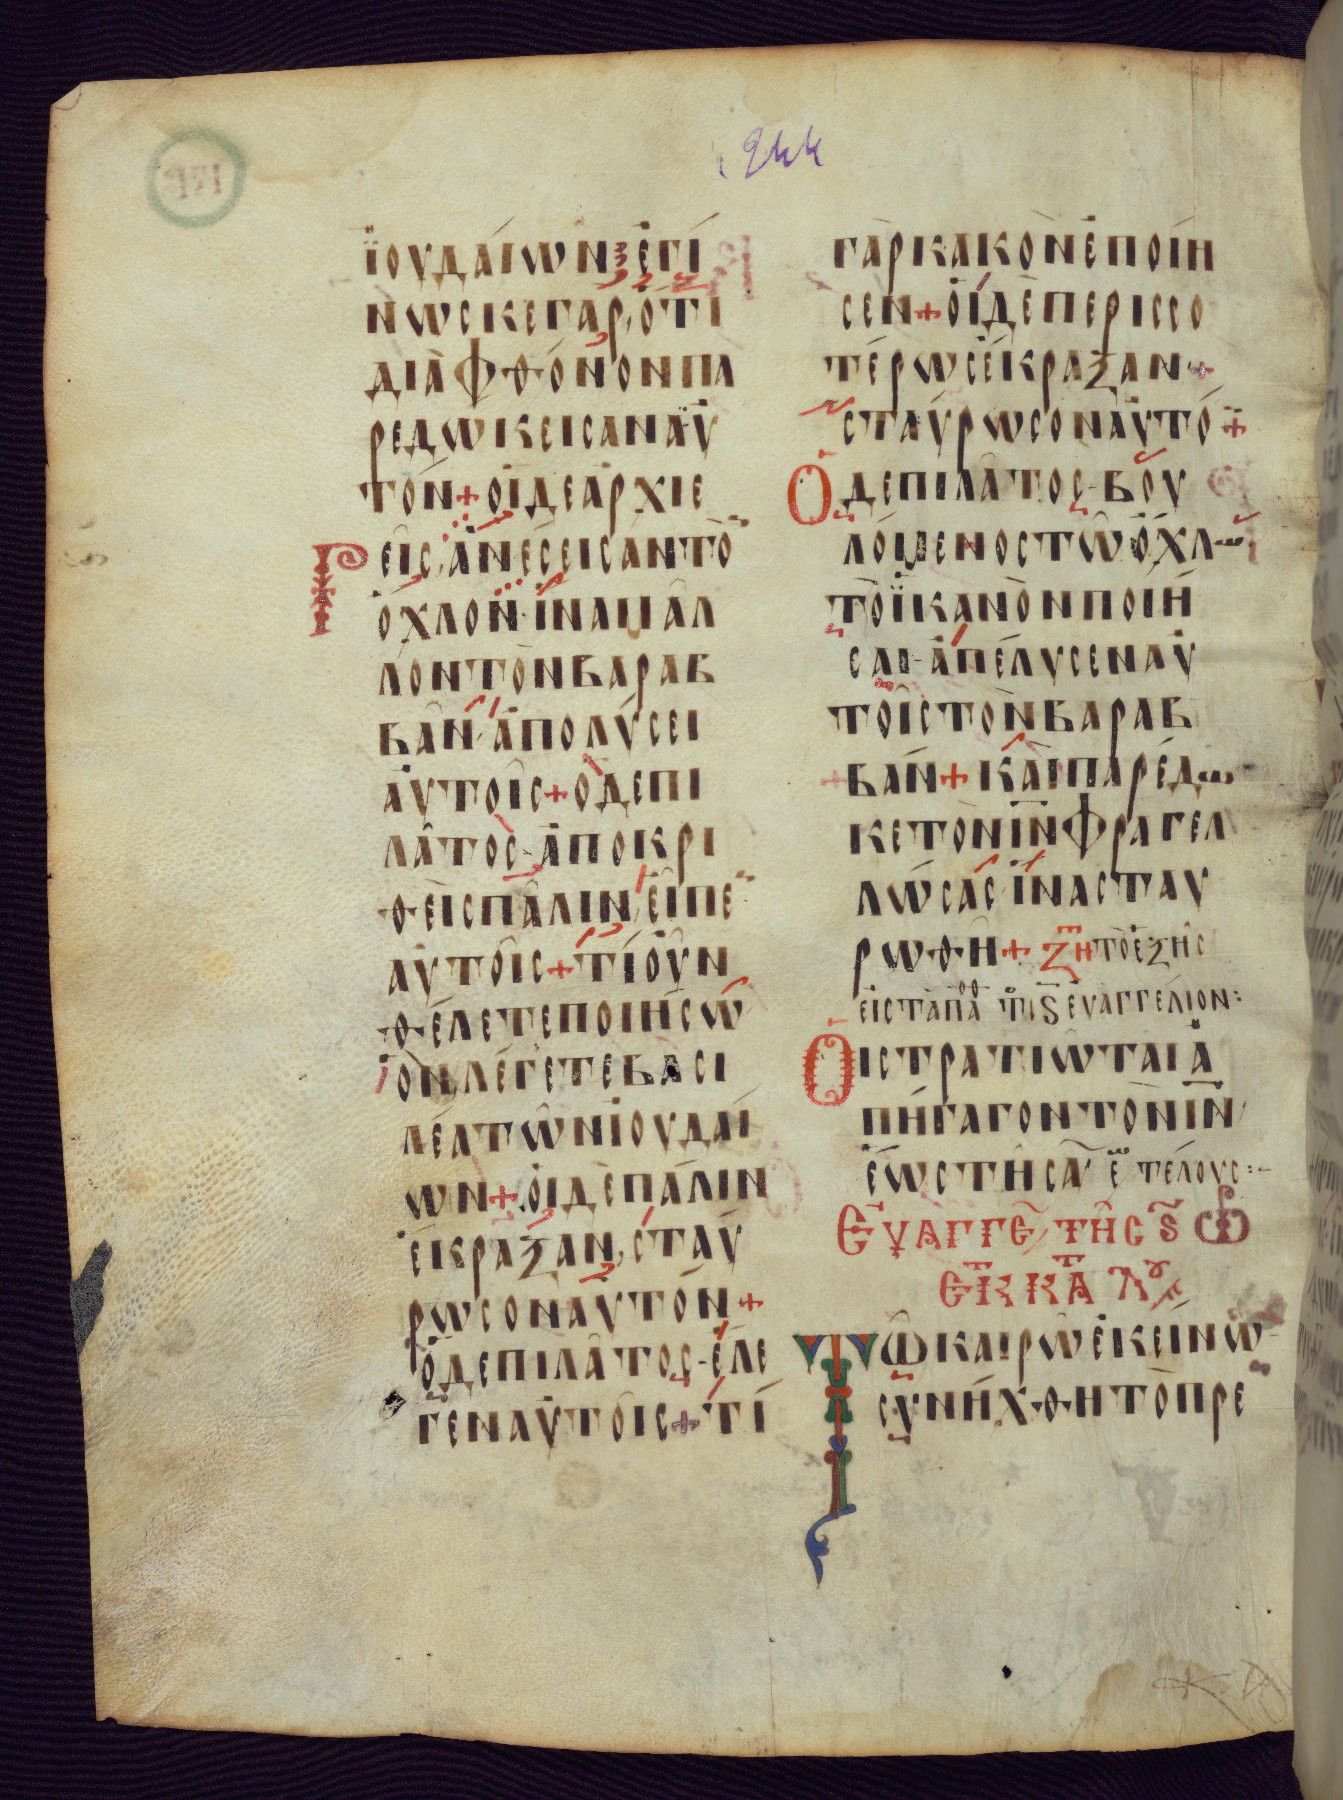 244
ϊουδαίων ἐγί
νωσκε γὰρ ὅτι
διὰ φθόνον πα
ρεδώκεισαν αὐ
τόν + οἱ δε ἀρχιε
ρεῖς ἀνέσεισαν τὸ
ὄχλον ἵνα μαλ
λον τὸν βαραβ
βᾶν ἀπολύσει
αὐτοῖς + ὁ δε πι
λᾶτος ἀποκρι
θεὶς πᾶλιν εἶπε
αὐτοῖς + τί οὖν
θέλετε ποιήσω
ὃν λέγετε βασι
λέα τῶν ϊουδαί
ων + οἱ δὲ πάλιν
ἔκραξαν σταύ
ρωσον αὐτόν +
ὁ δε πιλᾶτος ἔλε
γεν αὐτοῖς + τί
γὰρ κακὸν ἐποίη
σεν + οἱ δὲ περισσο
τέρως ἔκραξαν +
σταύρωσον αὐτό +
Ὁ δε πιλᾶτος βου
λόμενος τῶ ὄχλω
τὸ ϊκανὸν ποιῆ
σαι ἀπέλυσεν αὐ
τοῖς τὸν βαραβ
βάν + καὶ παρέδω
κε τὸν ιν φραγελ
λώσας ἵνα σταυ
ρωθῆ + ζη τὸ ἑξῆς
εἰς τὰ πα ϛ εὐαγγέλιον:
Οἱ στρατιῶται ἀ
πήγαγον τὸν ιν
ἕως τῆς α τέλους:
Εὐαγγε τῆς ϛ
ἐκ κα
Τῶ καιρῶ ἐκείνω
συνήχθη τὸ πρε